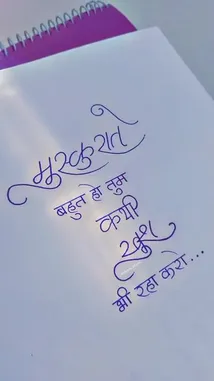 मुस्कुराते
बहुत हो तुम
कभी
खुश
भी रहा करो...